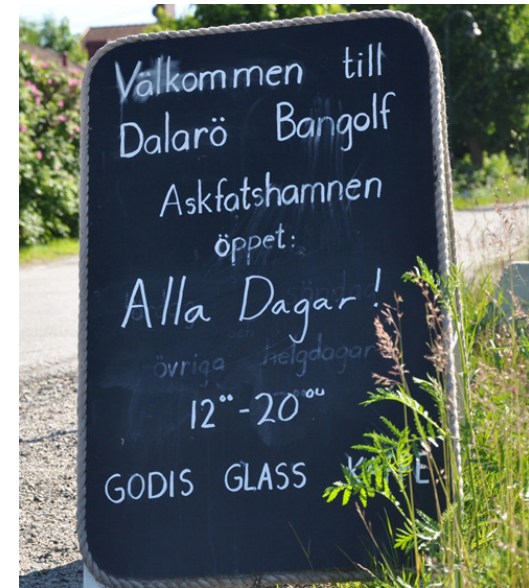 Välkommen till
Dalarö Bangolf
Askfatshamnen
öppet:
Alla Dagar!
övriga helgdagar
12°°-20°°
GODIS GLASS